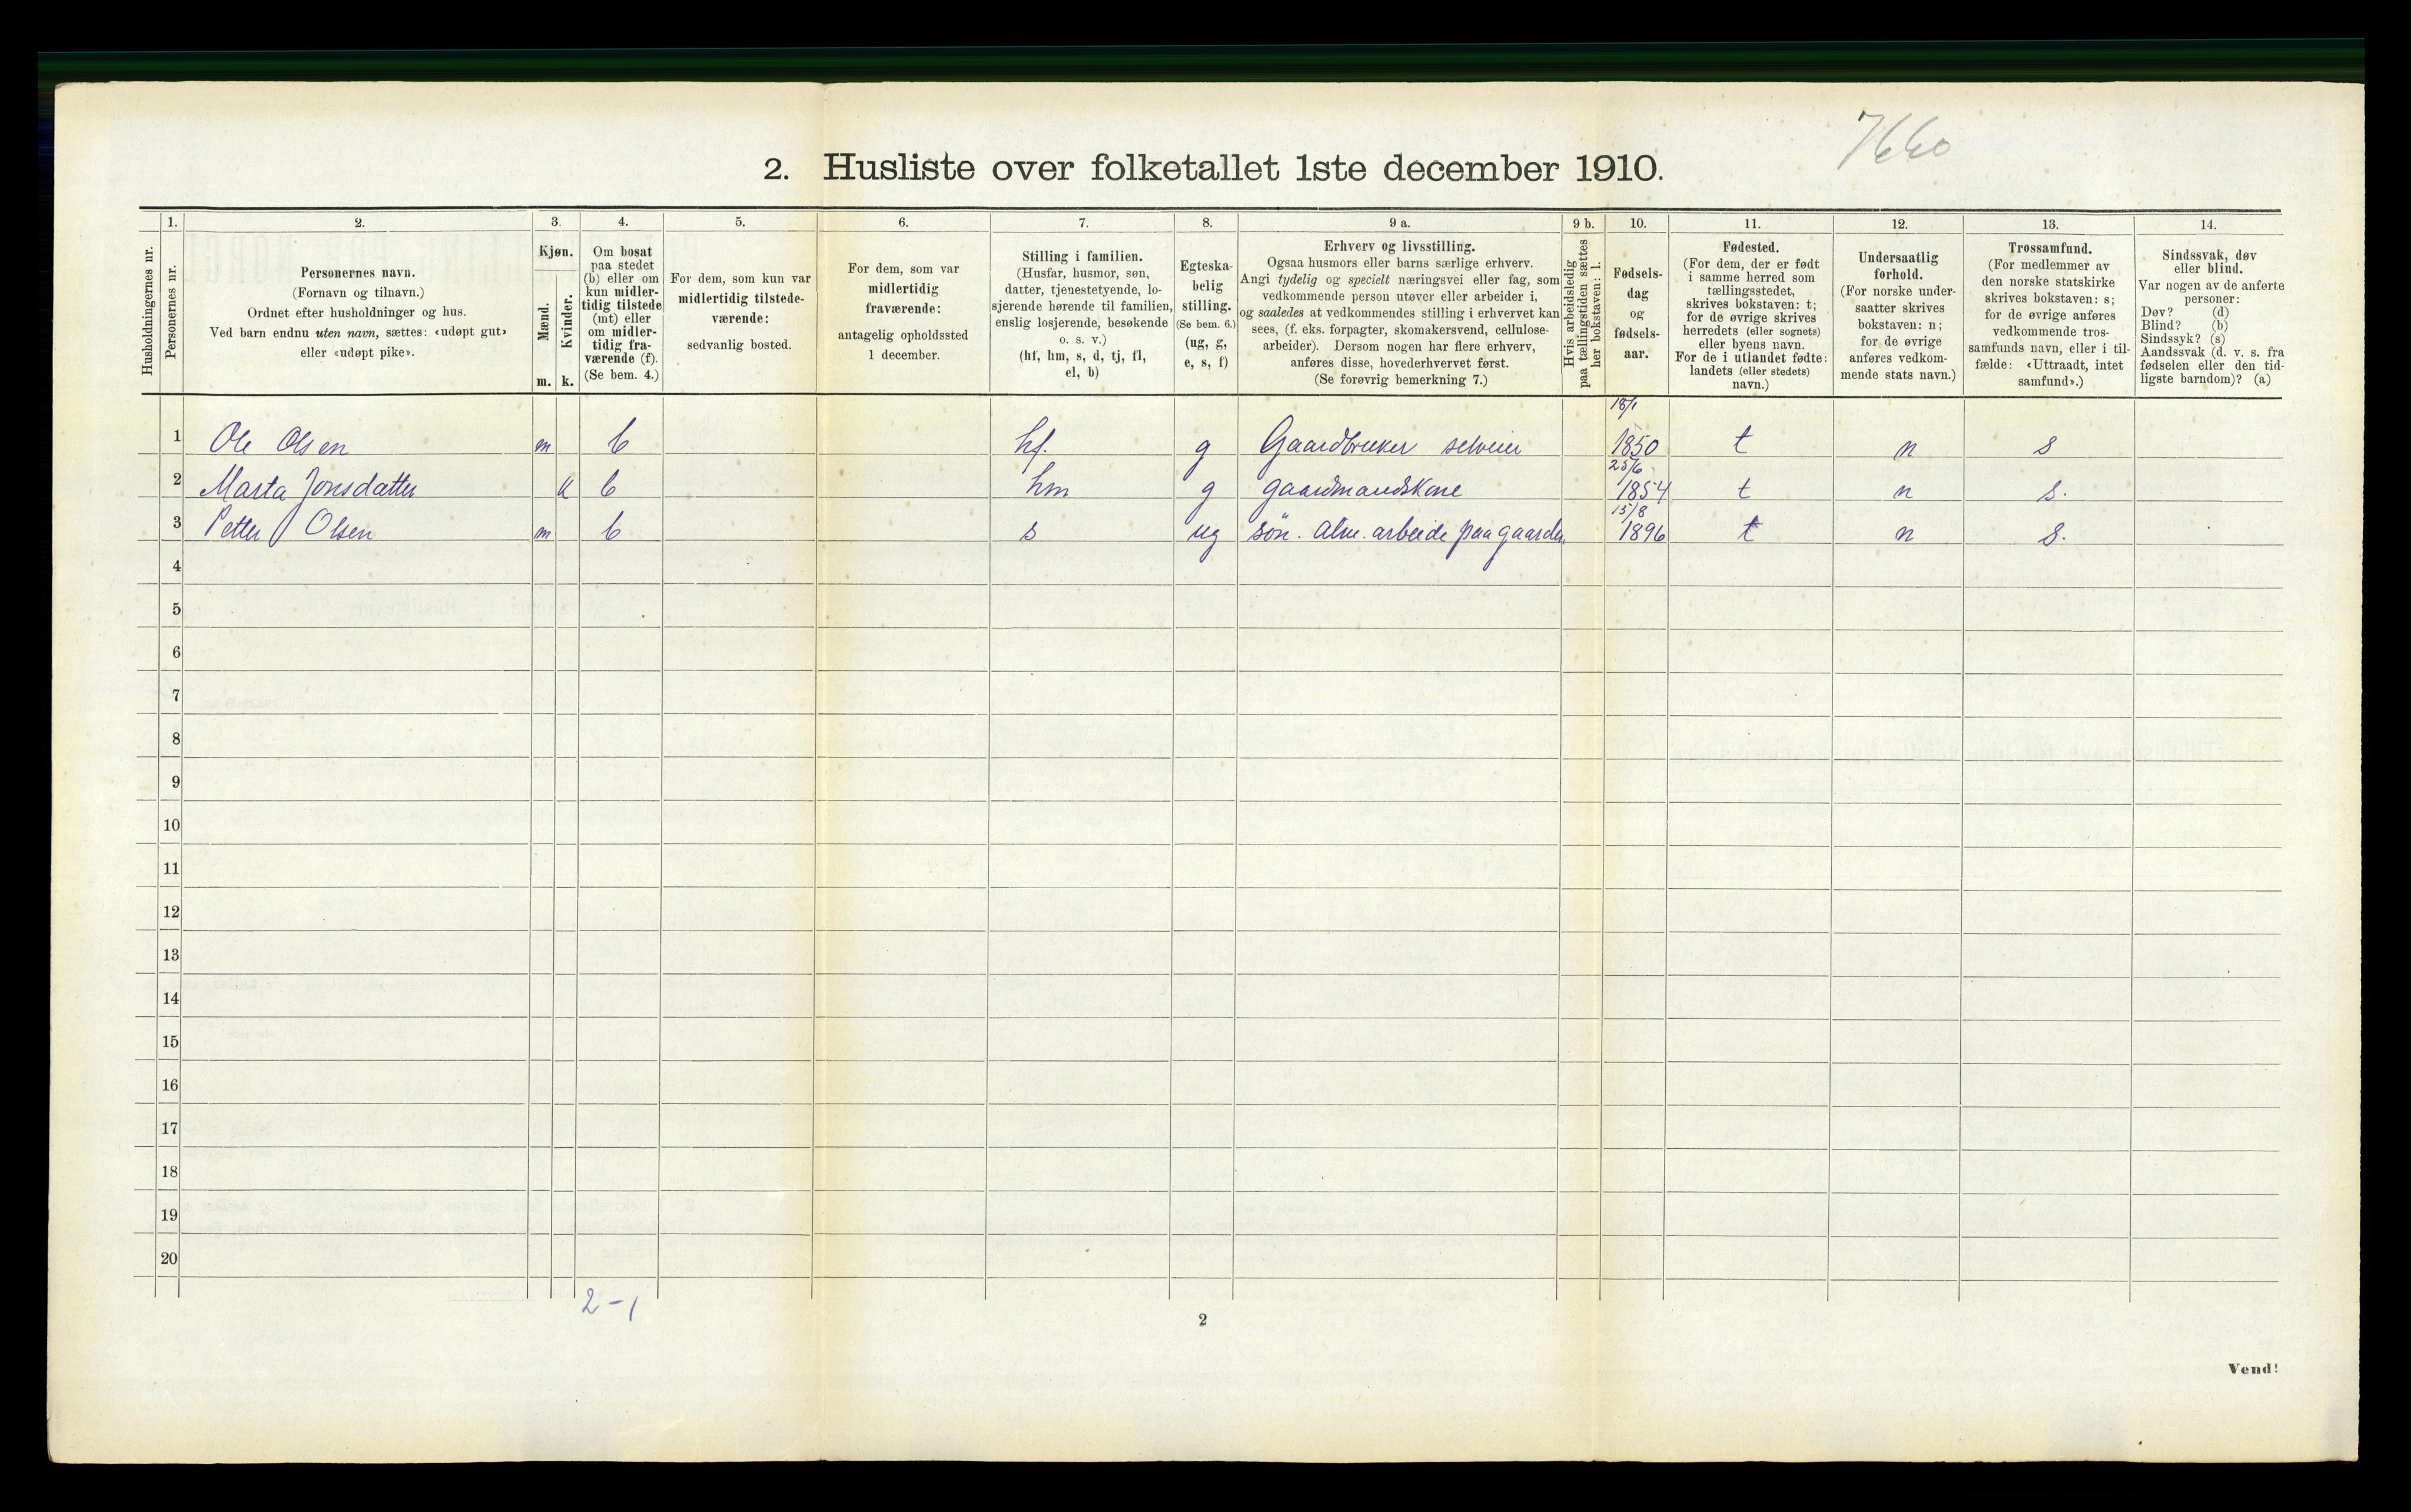 7660
2. Husliste over folketallet 1ste december 1910.
Husholdningernes nr.
1.
Personernes nr.
2.
Personernes navn.
(Fornavn og tilnavn.)
Ordnet efter husholdninger og hus.
Ved barn endnu uten navn, sættes: «udøpt gut»
eller «udøpt pike».
3.
Kjøn.
Mænd.
m.
Kvinder.
k.
4.
Om bosat
paa stedet
(b) eller om
kun midler-
tidig tilstede
(mt) eller
om midler-
tidig fra-
værende (f).
(Se bem. 4.)
5.
For dem, som kun var
midlertidig tilstede-
værende:
sedvanlig bosted.
6.
For dem, som var
midlertidig
fraværende:
antagelig opholdssted
1 december.
7.
Stilling i familien.
(Husfar, husmor, søn,
datter, tjenestetyende, lo-
sjerende hørende til familien,
enslig losjerende, besøkende
o. s. v.)
(hf, hm, s, d, tj, fl,
el, b)
8.
Egteska-
belig
stilling.
(Se bem. 6.)
(ug, g,
e, s, f)
9 a.
Erhverv og livsstilling.
Ogsaa husmors eller barns særlige erhverv.
Angi tydelig og specielt næringsvei eller fag, som
vedkommende person utøver eller arbeider i,
og saaledes at vedkommendes stilling i erhvervet kan
sees, (f. eks. forpagter, skomakersvend, cellulose-
arbeider). Dersom nogen har flere erhverv,
anføres disse, hovederhvervet først.
(Se forøvrig bemerkning 7.)
9 b.
Hvis arbeidsledig
paa tællingstiden sættes
her bokstaven: l.
10.
Fødsels-
dag
og
fødsels-
aar.
11.
Fødested.
(For dem, der er født
i samme herred som
tællingsstedet,
skrives bokstaven: t;
for de øvrige skrives
herredets (eller sognets)
eller byens navn.
For de i utlandet fødte:
landets (eller stedets)
navn.)
12.
Undersaatlig
forhold.
(For norske under-
saatter skrives
bokstaven: n;
for de øvrige
anføres vedkom-
mende stats navn.)
13.
Trossamfund.
(For medlemmer av
den norske statskirke
skrives bokstaven: s;
for de øvrige anføres
vedkommende tros-
samfunds navn, eller i til-
fælde: «Uttraadt, intet
samfund».)
14.
Sindssvak, døv
eller blind.
Var nogen av de anførte
personer:
Døv? (d)
Blind? (b)
Sindssyk? (s)
Aandssvak (d. v. s. fra
fødselen eller den tid-
ligste barndom)? (a)
18/1
1 Ole Olsen m b hf. g Gaardbruker selveier 1850 t n s
25/6
2 Marta Jonsdatter k b hm g gaardmandskone 1854 t n s.
15/8
3 Petter Olsen m b s ug søn. alm. arbeide paa gaarden 1896 t n s.
4
5
6
7
8
9
10
11
12
13
14
15
16
17
18
19
20
2-1
2
Vend!